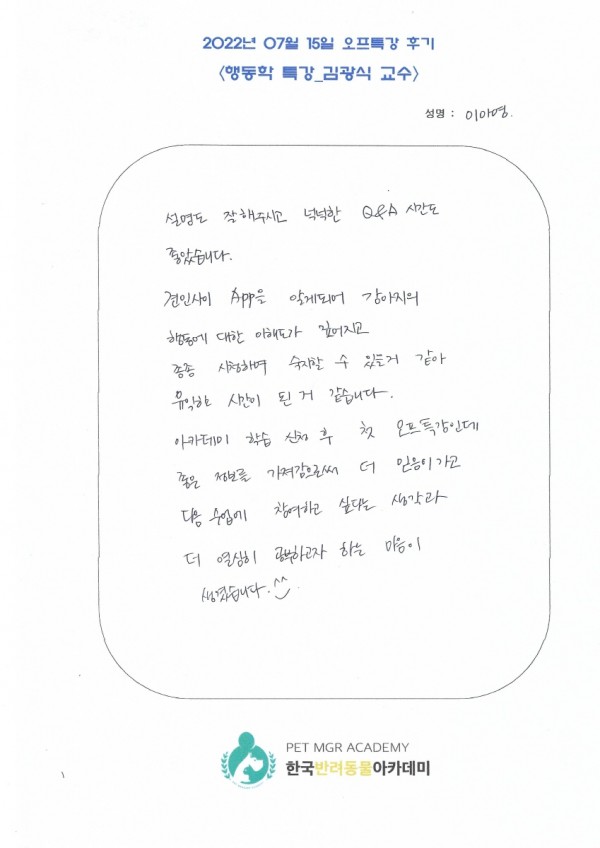 2022년 07월 15일 오프특강 후기
<행동학 특강_김광식 교수>
성명 : 이아영.
설명도 잘해주시고 넉넉한 Q&A 시간도
좋았습니다.
견인사이 App을 알게되어 강아지의
행동에 대한 이해도가 깊어지고
종종 시청하며 숙지할 수 있는거 같아
유익한 시간이 된 거 같습니다.
아카데미 학습 신청 후 첫 오프특강인데
좋은 정보를 가져감으로써 더 믿음이가고
다음 수업에 참여하고 싶다는 생각과
더 열심히 공부하고자 하는 마음이
생겼습니다.^^
PET MGR ACADEMY
한국반려동물아카데미